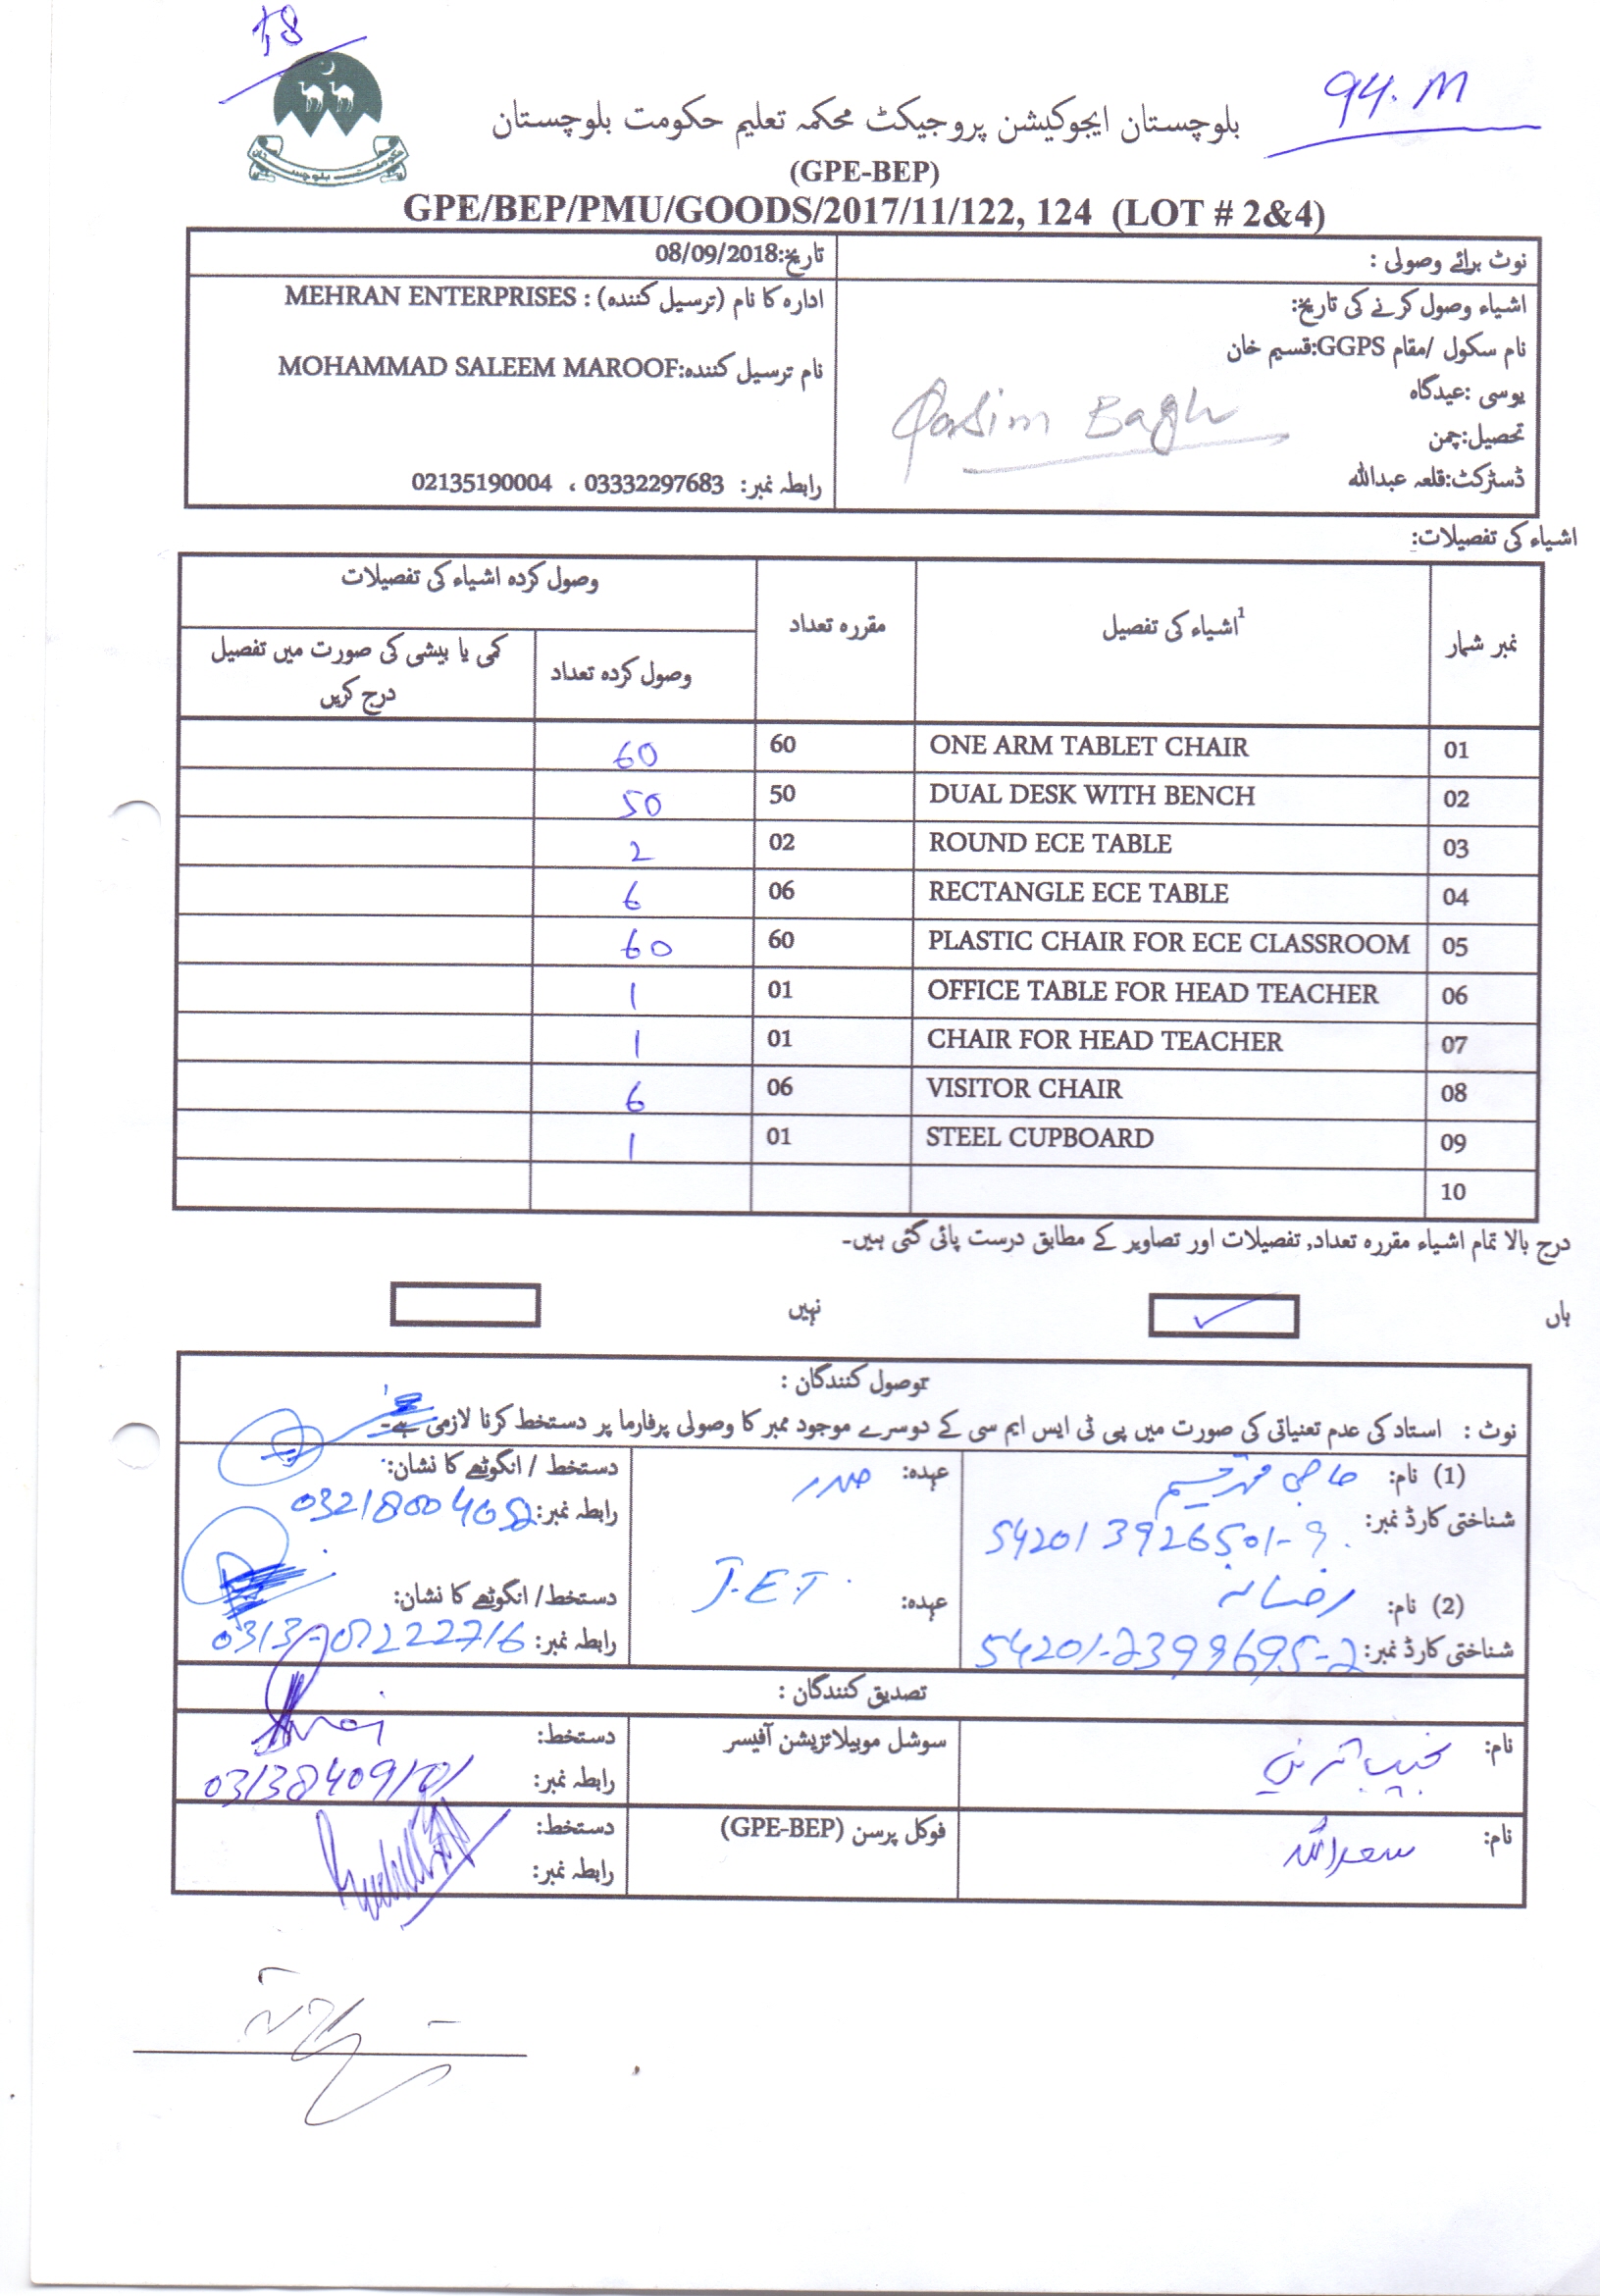 18
94. M
حکومت بلوچستان
بلوچستان ایجوکیشن پروجیکٹ محکمہ تعلیم حکومت بلوچستان
(GPE-BEP)
GPE/BEP/PMU/GOODS/2017/11/122, 124 (LOT # 2&4)
نوٹ برائے وصولی :
تاریخ:08/09/2018
اشیاء وصول کرنے کی تاریخ:
نام سکول /مقام GGPS:قسیم خان
یوسی :عیدگاہ
تحصیل:چمن
ڈسٹرکٹ:قلعہ عبداللہ
Qasim Bagh
ادارہ کا نام (ترسیل کنندہ) : MEHRAN ENTERPRISES
نام ترسیل کنندہ:MOHAMMAD SALEEM MAROOF
رابطہ نمبر: 03332297683 ، 02135190004
اشیاء کی تفصیلات:
نمبر شمار اشیاء کی تفصیل1 مقررہ تعداد وصول کردہ اشیاء کی تفصیلات
وصول کردہ تعداد کمی یا بیشی کی صورت میں تفصیل
درج کریں
01 ONE ARM TABLET CHAIR 60 60
02 DUAL DESK WITH BENCH 50 50
03 ROUND ECE TABLE 02 2
04 RECTANGLE ECE TABLE 06 6
05 PLASTIC CHAIR FOR ECE CLASSROOM 60 60
06 OFFICE TABLE FOR HEAD TEACHER 01 1
07 CHAIR FOR HEAD TEACHER 01 1
08 VISITOR CHAIR 06 6
09 STEEL CUPBOARD 01 1
10
درج بالا تمام اشیاء مقررہ تعداد, تفصیلات اور تصاویر کے مطابق درست پائی گئی ہیں۔
ہاں ✓ نہیں
وصول کنندگان :
نوٹ : استاد کی عدم تعنیاتی کی صورت میں پی ٹی ایس ایم سی کے دوسرے موجود ممبر کا وصولی پرفارما پر دستخط کرنا لازمی ہے۔
(1) نام: حاجی محمد قسیم عہدہ: صدر دستخط / انگوٹھے کا نشان:
شناختی کارڈ نمبر: 54201 3926501-9 رابطہ نمبر: 03218004052
(2) نام: رخسانہ عہدہ: J.E.T. دستخط/ انگوٹھے کا نشان:
شناختی کارڈ نمبر: 54201-2399695-2 رابطہ نمبر:
تصدیق کنندگان :
نام: سوشل موبیلائزیشن آفیسر دستخط:
رابطہ نمبر: 03138409101
نام: سعداللہ فوکل پرسن (GPE-BEP) دستخط:
رابطہ نمبر: